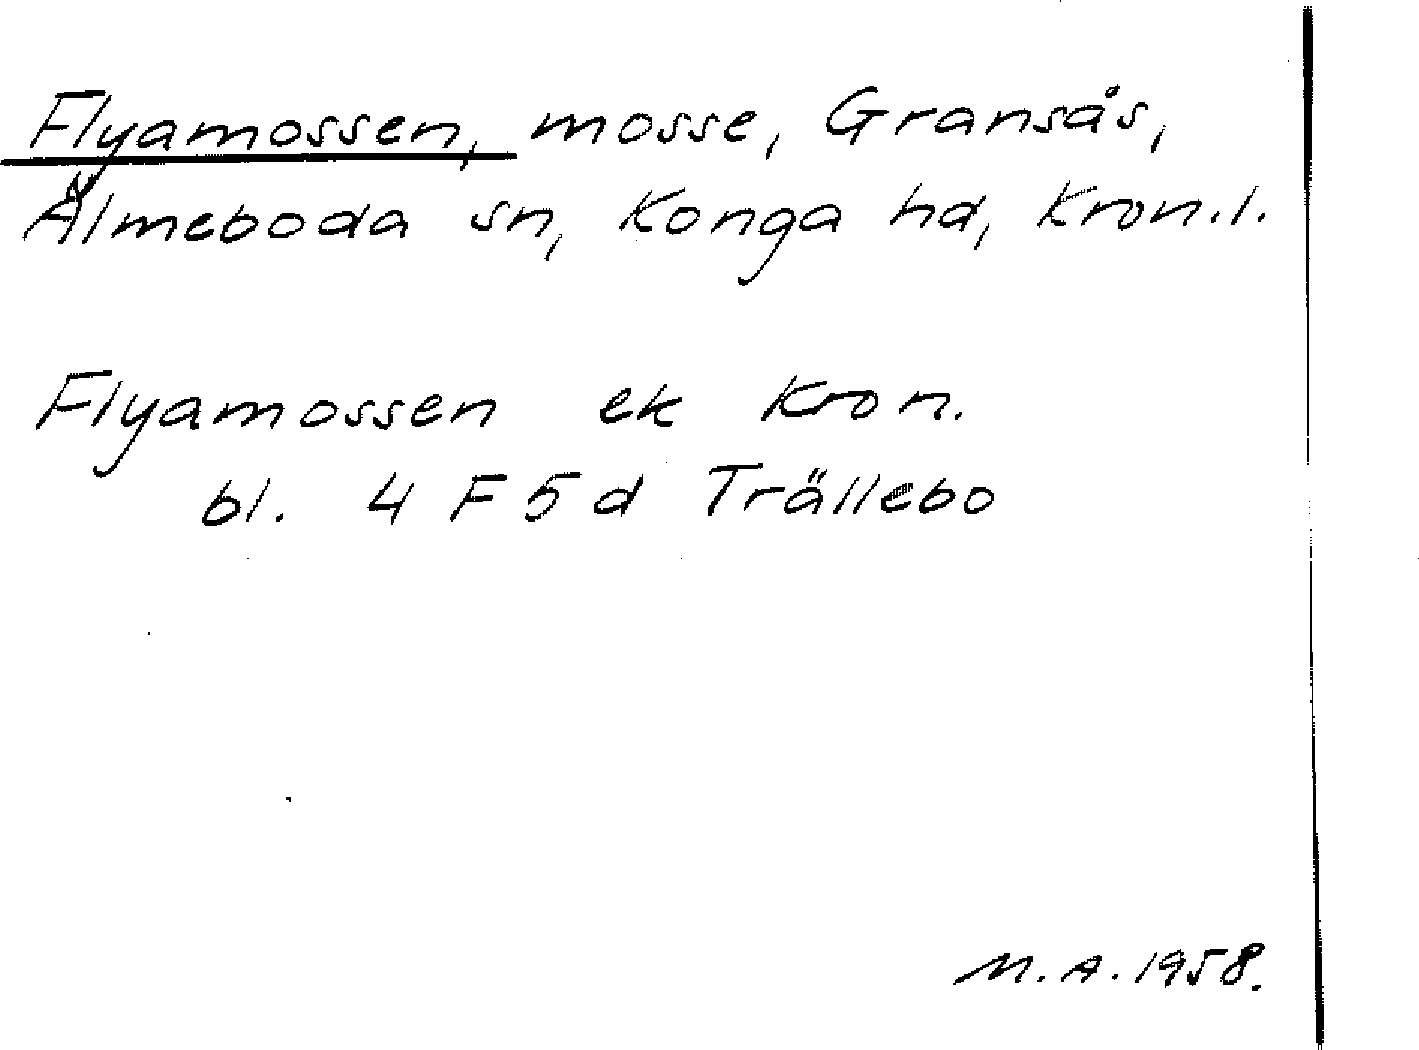 Flyamossen, mosse, Gransås,
Älmeboda sn, Konga hd, Kron.l.
Flyamossen ek Kron.
bl. 4 F 5 d Trällebo
M.A. 1958.